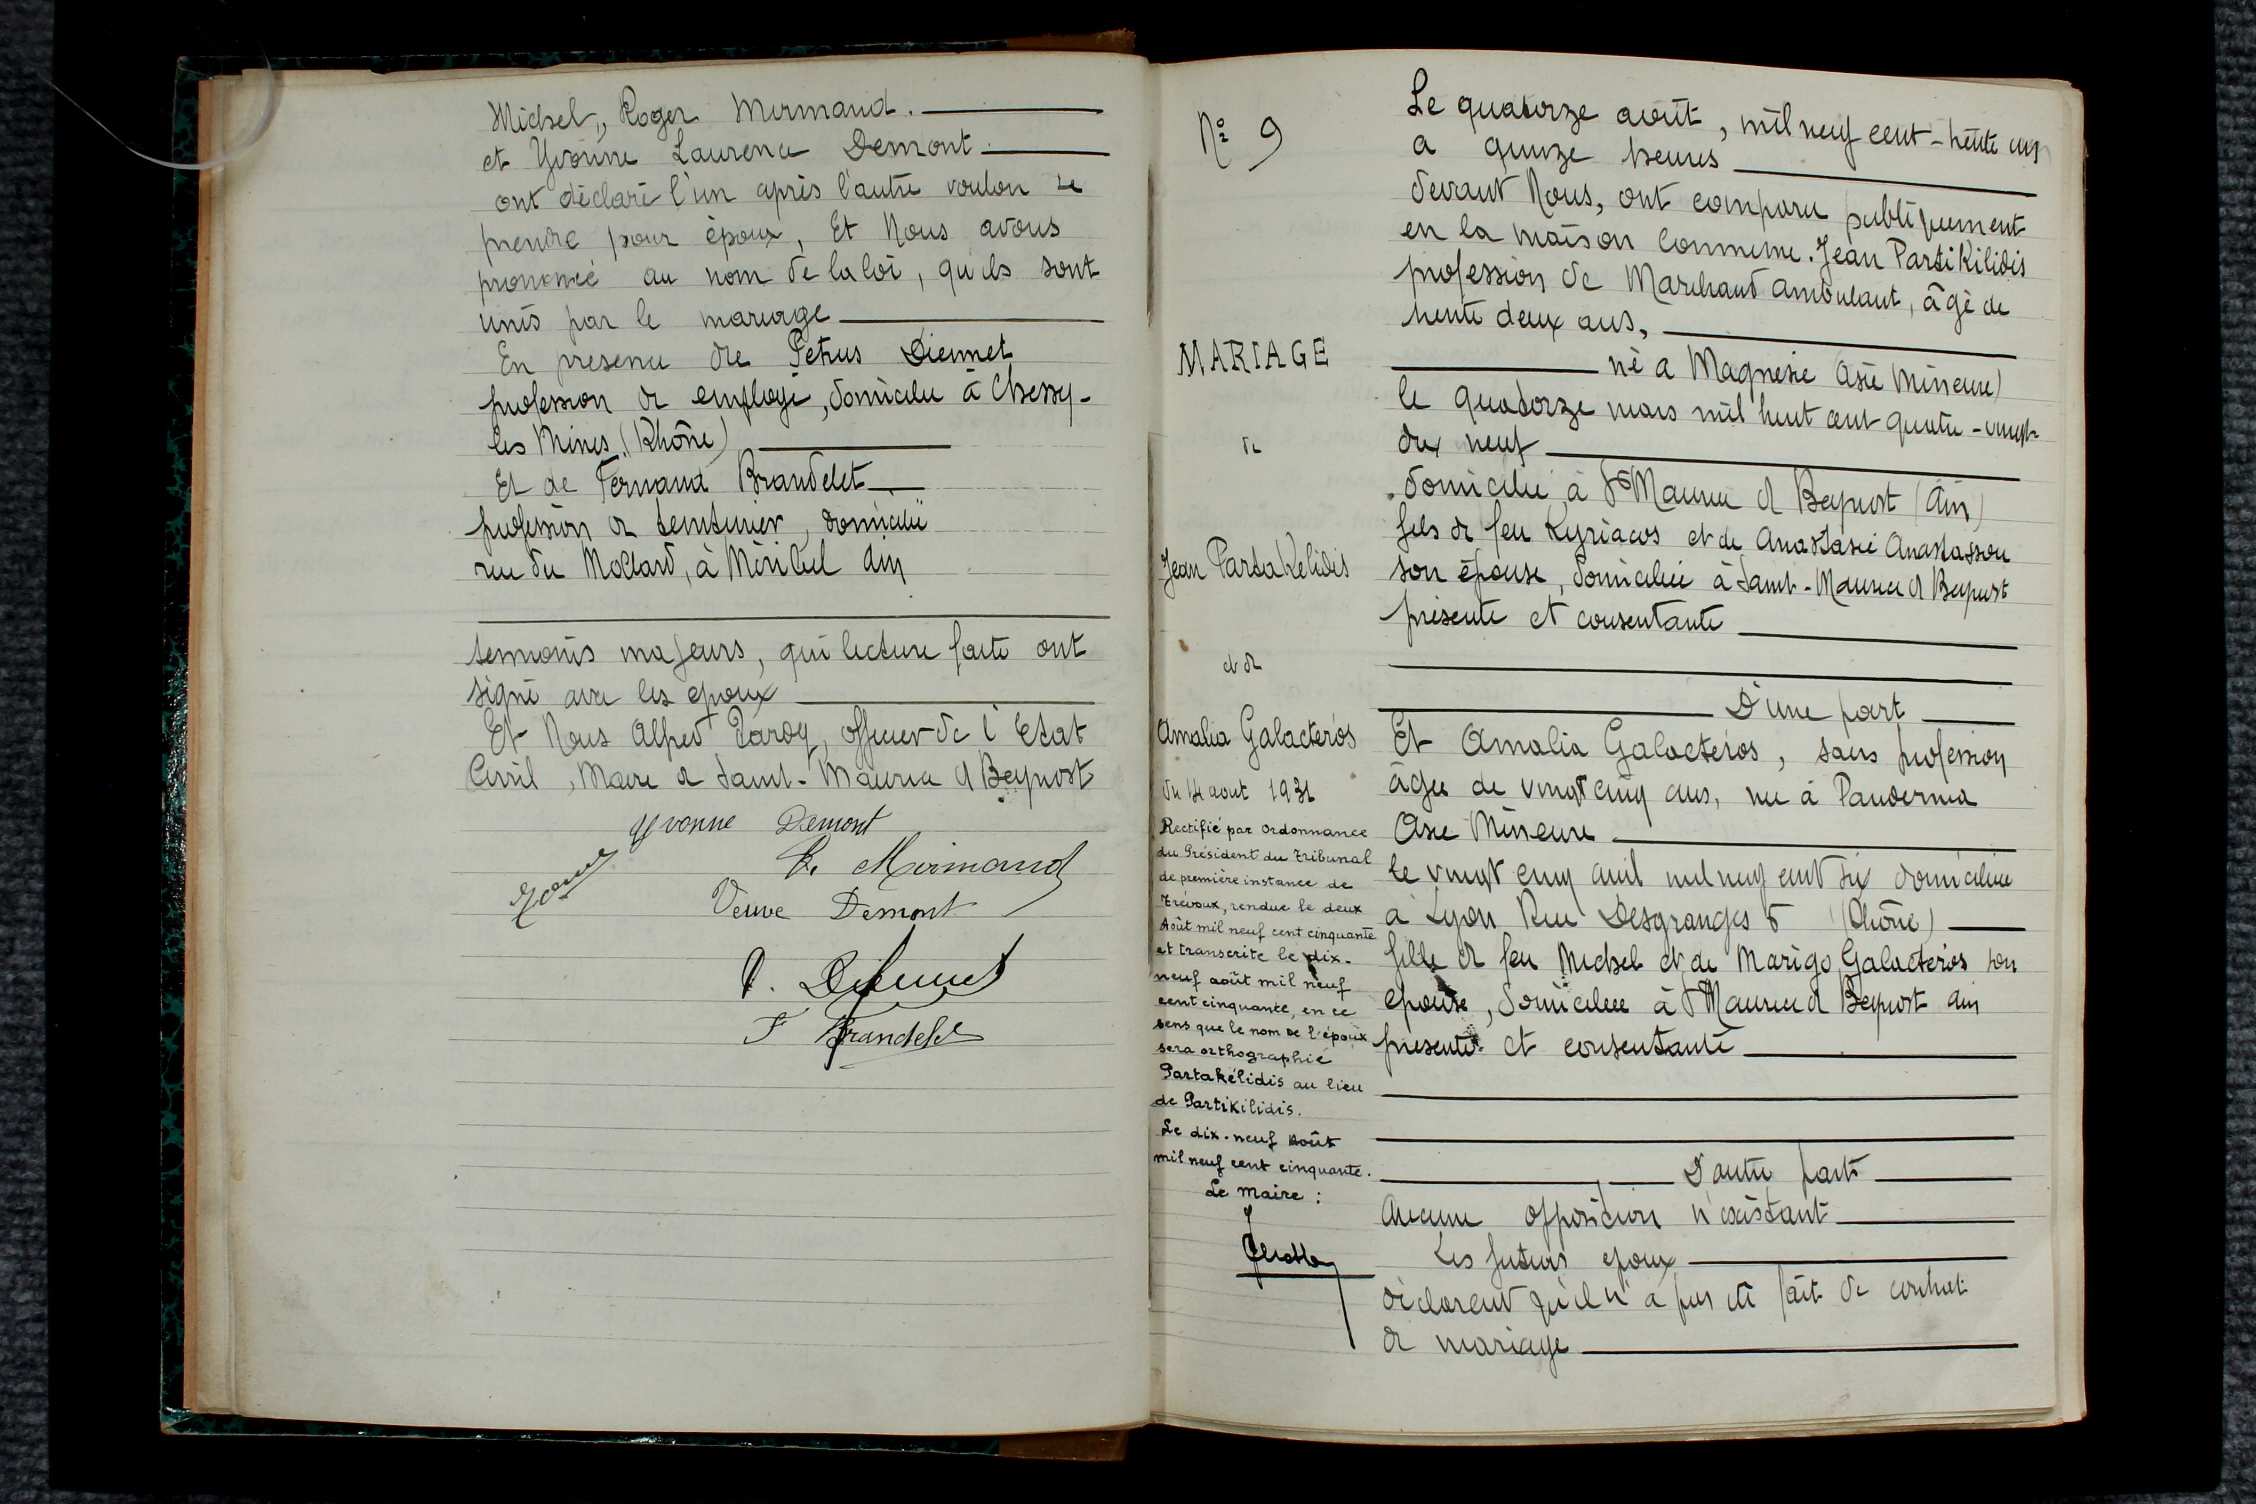 Michel, Roger Mirmand.
et Yvonne Laurence Demont
ont déclaré l'un après l'autre vouloir se
prendre pour époux, Et Nous avons
prononcé au nom de la loi, qu'ils sont
unis par le mariage
En presence de Petrus Diennet
profession de employé, domicilié à Chessy-
les Mines. (Rhône)
Et de Fernand Brandelet
profession de teinturier, domicilié
rue du Mollard, à Miribel Ain
temoins majeurs, qui lecture faite ont
signé avec les epoux
Et Nous Alfred Pardy, officier de l'Etat
Civil, Maire de Saint-Maurice de Beynost
Yvonne Demont
R. Mirmand
Veuve Demont
P. Diennet
F Brandelet
N° 9
MARIAGE
de
Jean Partakelidis
et de
Amalia Galactéros
du 14 aout 1931
Rectifié par ordonnance
du Président du Tribunal
de première instance de
Trévoux, rendue le deux
Août mil neuf cent cinquante
et transcrite le dix-
neuf août mil neuf
cent cinquante, en ce
sens que le nom de l'époux
sera orthographié
Partakélidis au lieu
de Partikilidis.
Le dix-neuf Août
mil neuf cent cinquante.
Le maire :
Le quatorze août, mil neuf cent-trente un
a quinze heures
devant Nous, ont comparu publiquement
en la maison Commune. Jean Partikilidis
profession de Marchand ambulant, âgé de
trente deux ans,
né a Magnesie Asie Mineure)
le quatorze mars mil huit cent quatre-vingt-
dix neuf
domicilié à St Maurice de Beynost (Ain)
fils de feu Kyriacos et de Anastasie Anastassou
son épouse, domiciliée à Saint-Maurice de Beynost
présente et consentante
D'une part
Et Amalia Galactéros, sans profession
âgée de vingt cinq ans, née à Panderma
Asie Mineure
le vingt cinq avril mil neuf cent six domiciliée
à Lyon Rue Desgranges 5 (Rhône)
fille de feu Michel et de Marigo Galactéros son
epouse, domiciliée à St Maurice de Beynost Ain
presente et consentante
D'autre part
Aucune opposition n'existant
Les futurs epoux
déclarent qu'il n'a pas été fait de contrat
de mariage